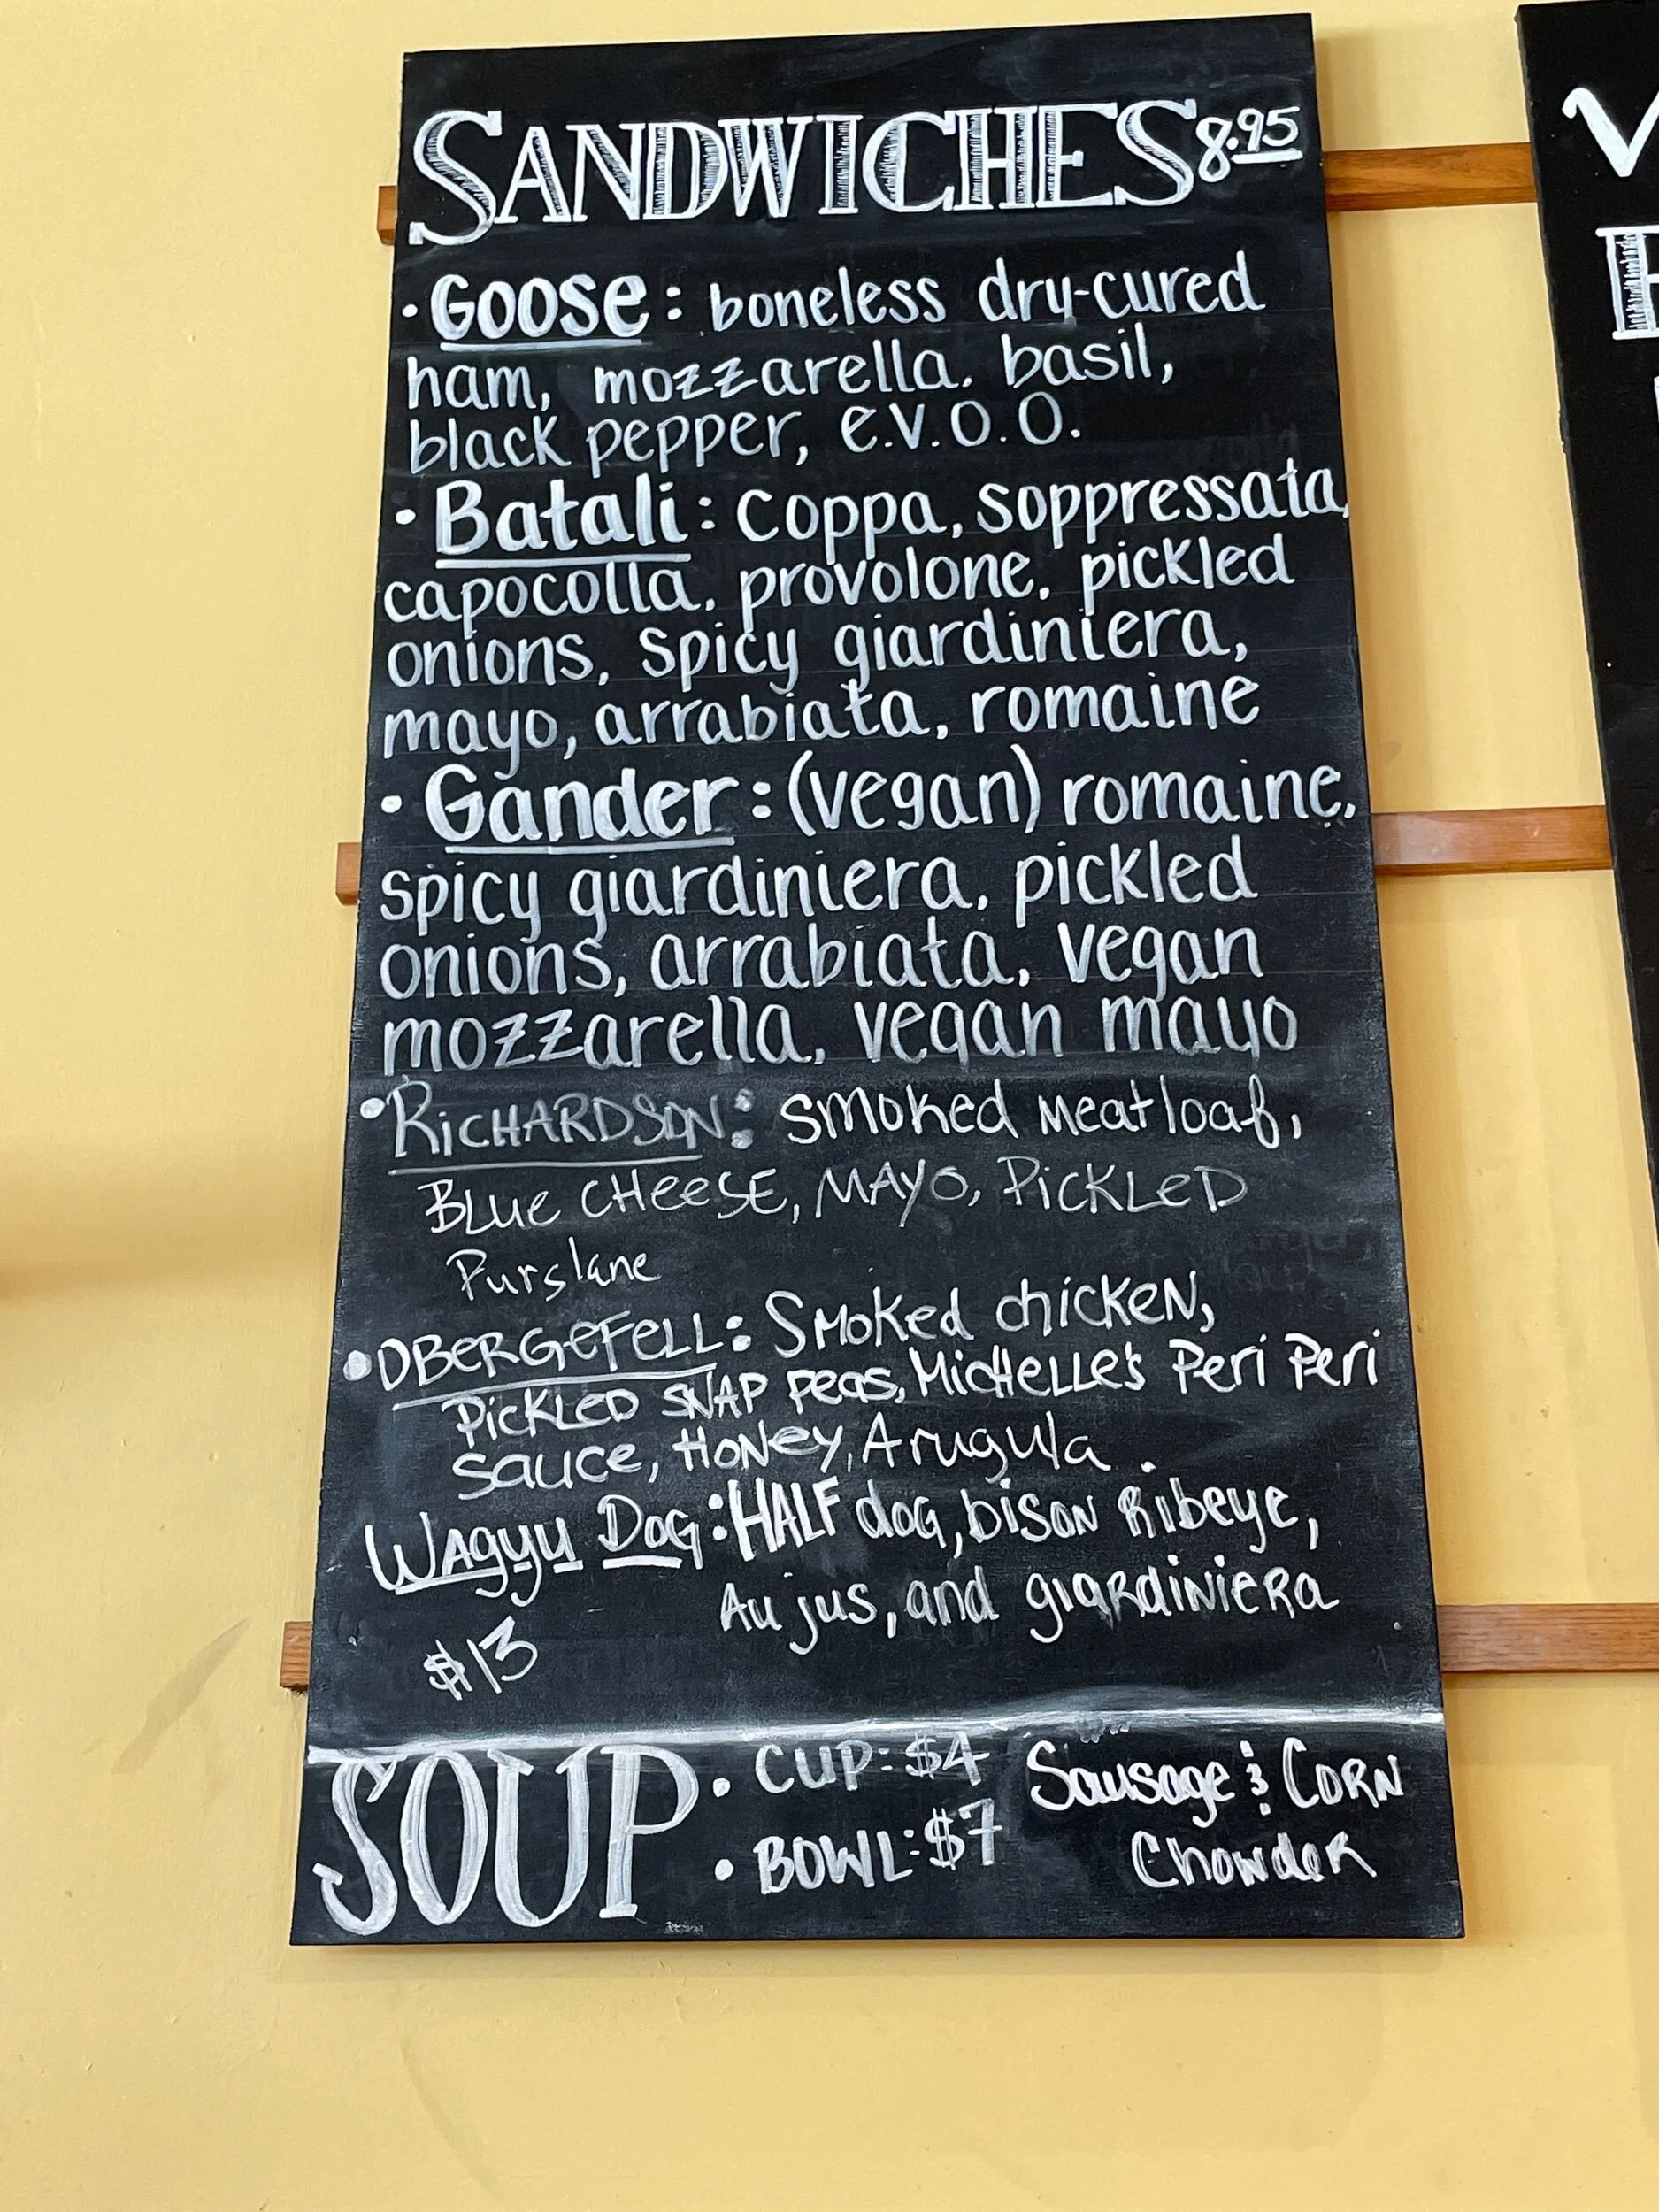 SANDWICHES 8.95
• Goose: boneless dry-cured
ham, mozzarella, basil,
black pepper, e.v.o.o.
• Batali: coppa, soppressata,
capocolla, provolone, pickled
onions, spicy giardiniera,
mayo, arrabiata, romaine
• Gander: (vegan) romaine,
spicy giardiniera, pickled
onions, arrabiata, vegan
mozzarella, vegan mayo
• RICHARDSON: Smoked Meatloaf,
BLUE CHEESE, MAYO, PICKLED
Purslane
• OBERGEFELL: Smoked chicken,
PICKLED SNAP peas, MICHELLE's Peri Peri
sauce, HONey, Arugula.
Wagyu Dog: HALF dog, bison Ribeye,
Au jus, and giardiniera
$13
SOUP • CUP: $4 Sausage & CORN
• BOWL: $7 Chowder